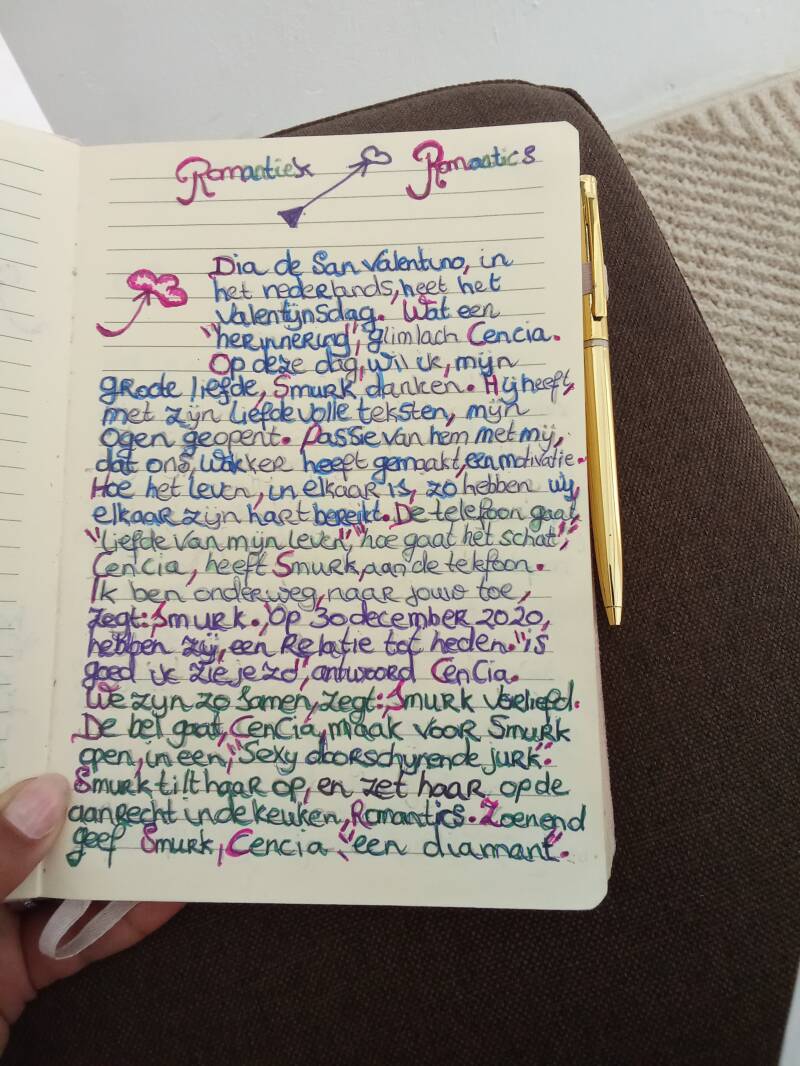 Romantiek Romantics
Dia de San Valentino, in
het nederlands, heet het
Valentijnsdag. Wat een
"herinnering", glimlach Cencia.
Op deze dag, wil ik, mijn
grode liefde, Smurk danken. Hij heeft,
met zijn liefdevolle teksten, mijn
ogen geopent. Passie van hem met mij,
dat ons, wakker heeft gemaakt, een motivatie.
Hoe het leven, in elkaar is, zo hebben wij
elkaar zijn hart bereikt. De telefoon gaat,
"Liefde van mijn leven", "hoe gaat het schat",
Cencia, heeft Smurk, aan de telefoon.
Ik ben onderweg, naar jouw toe,
zegt: Smurk. Op 30 december 2020,
hebben zij, een Relatie tot heden. "is
goed ik zie je zo", antwoord Cencia.
We zijn zo samen, zegt: Smurk verliefd.
De bel gaat, Cencia, maak voor Smurk
open, in een, "Sexy doorschijnende jurk".
Smurk tilt haar op, en zet haar op de
aanrecht in de keuken, Romantics. Zoenend
geef Smurk, Cencia "een diamant".